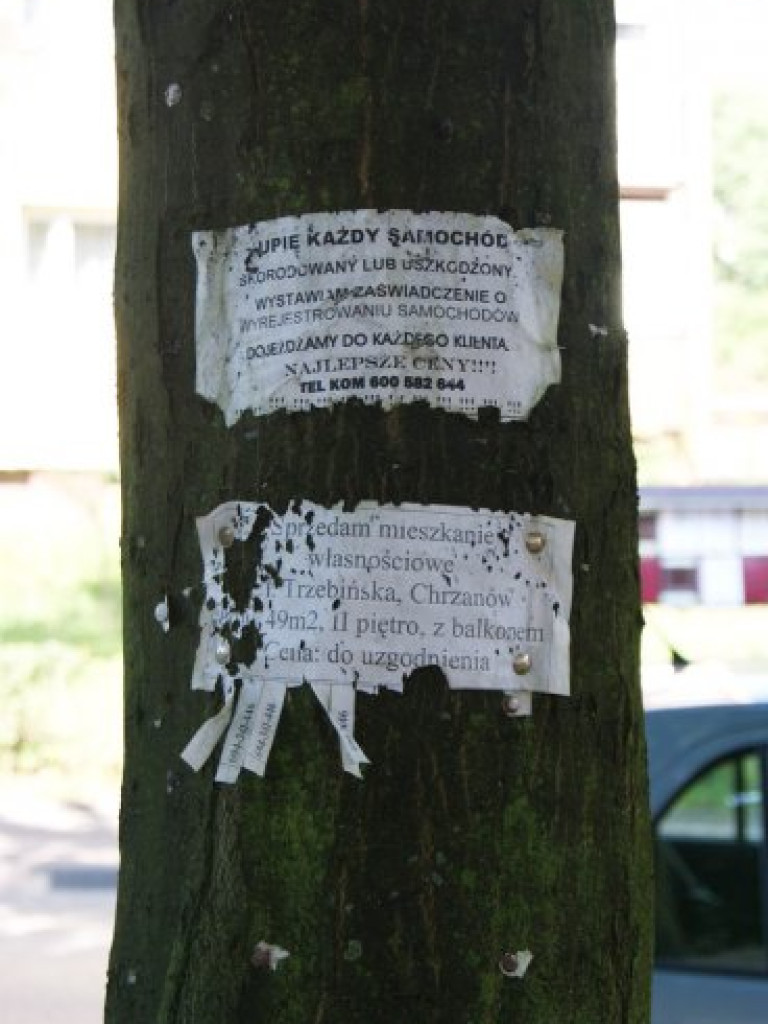 KUPIĘ KAŻDY SAMOCHÓD
SKORODOWANY LUB USZKODZONY.
WYSTAWIAM ZAŚWIADCZENIE O
WYREJESTROWANIU SAMOCHODÓW
DOJEŻDŻAMY DO KAŻDEGO KLIENTA.
NAJLEPSZE CENY!!!!
TEL KOM 600 582 644
Sprzedam mieszkanie
własnościowe
Trzebińska, Chrzanów
49m2, II piętro, z balkonem
Cena: do uzgodnienia